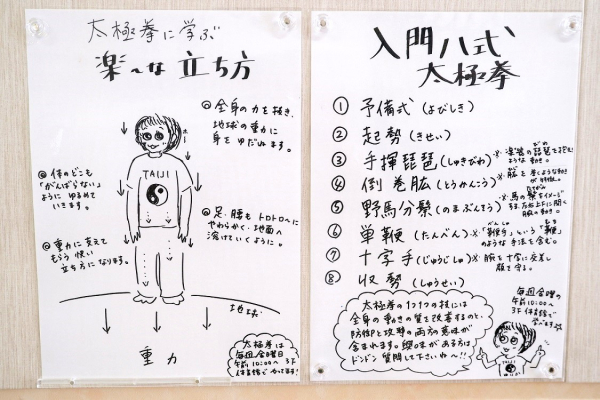 太極拳に学ぶ
楽〜な立ち方
◎全身の力を抜き、
地球の重力に
身をゆだねます。
ホー
TAIJI
◎体のどこも
「がんばらない」
ように ゆるめて
いきます。
◎足・腰もトロトロへに
やわらかく・地面へ
溶けていくように。
◎重力に支えて
もらう快い
立ち方になります。
地球
重力
太極拳は
毎週金曜日
午前10:00〜 3F
体育館でやってます!
入門八式
太極拳
① 予備式(よびしき)
② 起勢(きせい)
③ 手揮琵琶(しゅきびわ)
※楽器の琵琶を抱む
ような動き。
④ 倒巻肱(とうかんこう)
※腕を巻くような動き
が特徴。
⑤ 野馬分鬃(のまぶんそう)
たてがみ
※馬の鬃をイメージ
する。左右上下に開く
腕の動き。
⑥ 単鞭(たんべん)
※「単鞭手」という「鞭」
のような手法を含む。
⑦ 十字手(じゅうじしゅ)
※腕を十字に交差し
腹を守る。
⑧ 収勢(しゅうせい)
太極拳の1つ1つの技には
全身の動きの質を改善するのと、
防御と攻撃の両方の意味が
含まれます。興味がある方は
ドンドン質問して下さいね〜!!
毎週金曜の
午前10:00〜
3F 体育館で
学べます
TAIJI